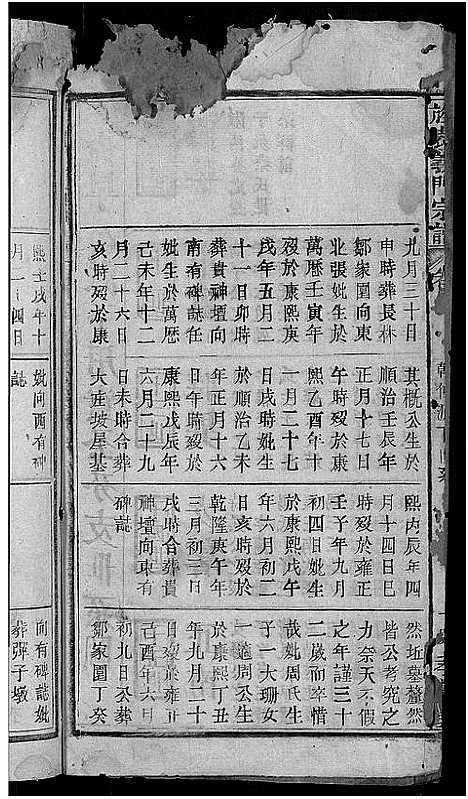 義門宗譜
九月三十日
申時葬長林
鄒家園向東
北張妣生於
萬曆壬寅年
歿於康熙庚
戌年五月二
十一日卯時
葬貴神壇向
南有碑誌任
妣生於萬曆
己未年十二
月二十六日
亥時歿於康
其概公生於
順治壬辰年
正月十七日
午時歿於康
熙乙酉年十
一月二十七
日戌時妣生
於順治乙未
年正月十六
日午時歿於
康熙戊辰年
六月二十九
日未時合葬
大産坡屋基
熙丙辰年四
月十四日巳
時歿於雍正
壬子年九月
初四日妣生
於康熙戊午
年六月初二
日亥時歿於
乾隆庚午年
三月初三日
戌時合葬貴
神壇向東有
碑誌
然坵墓釐然
皆公考究之
力奈天不假
之年謹三十
二歲而卒惜
哉妣周氏生
子一大珊女
一適周公生
於康熙丁丑
年九月二十
日歿於雍正
己酉年六月
初九日公葬
鄒家園丁癸
熙壬戌年十
月二十四日
妣向酉有碑
誌
向有碑誌妣
葬彈子墩